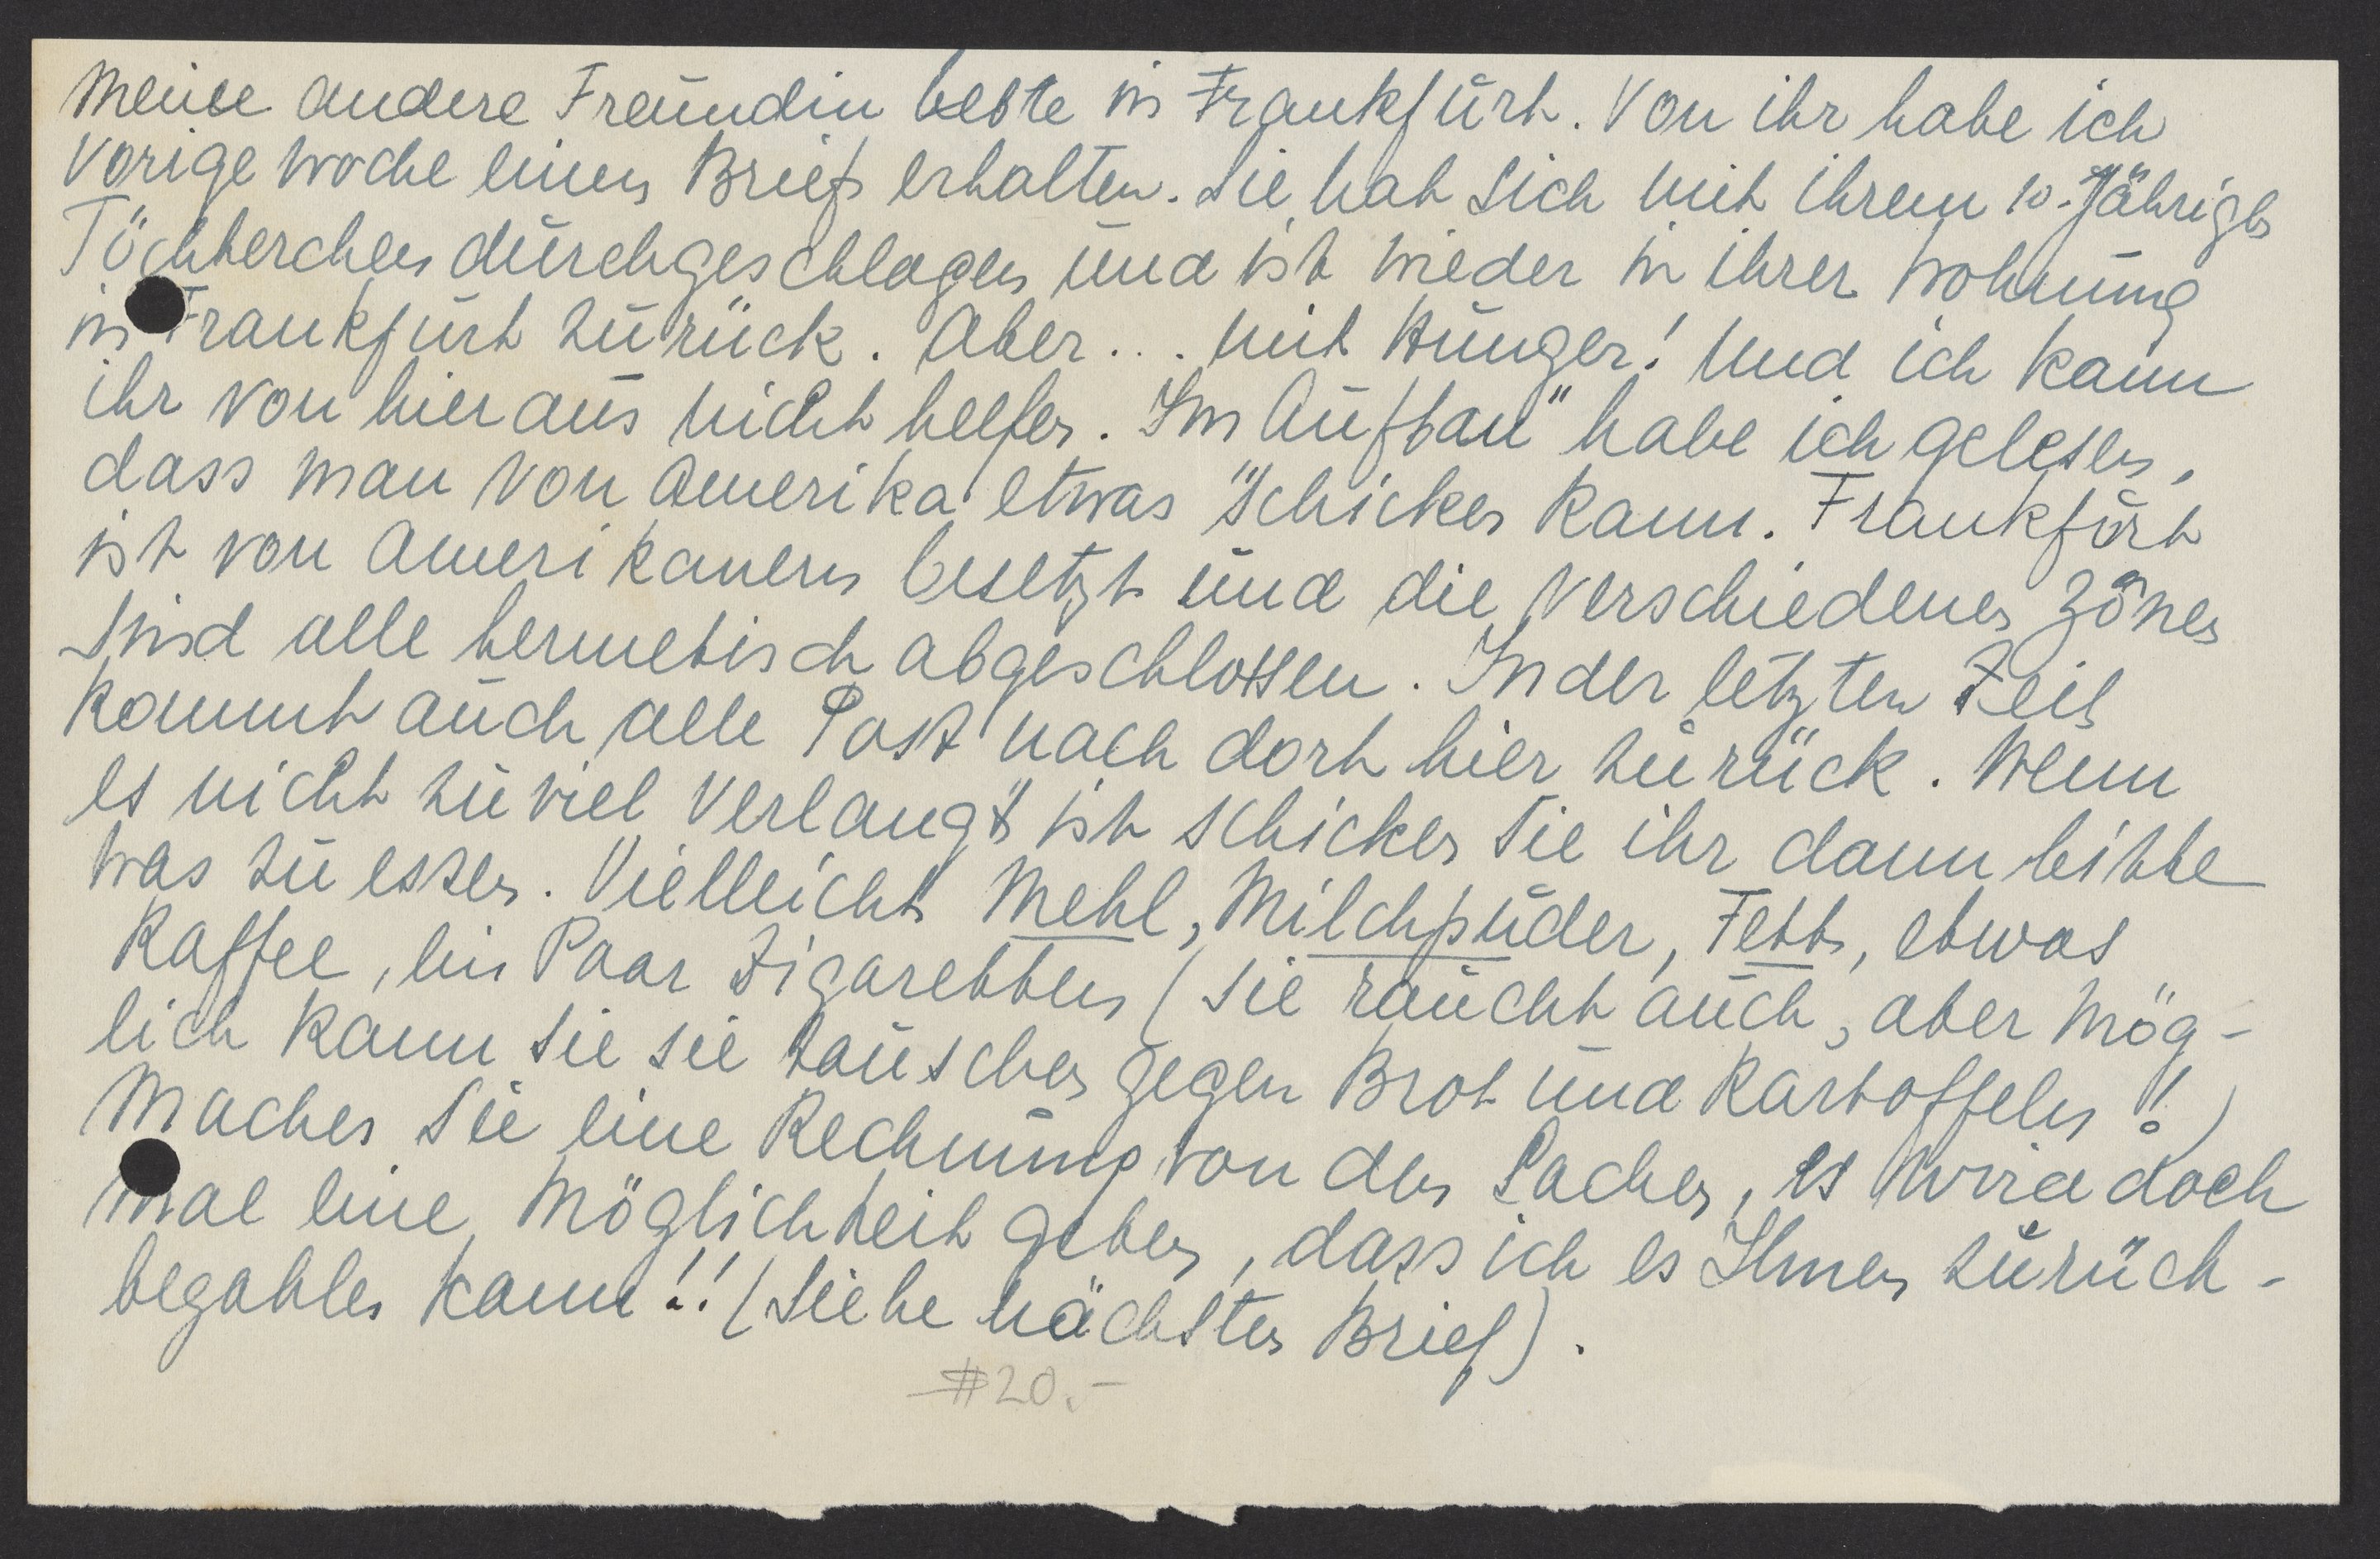 Meine andere Freundin lebte in Frankfurt. Von ihr habe ich
vorige Woche einen Brief erhalten. Sie hat sich mit ihrem 10-Jährigen
Töchterchen durchgeschlagen und ist wieder in ihrer Wohnung
in Frankfurt zurück. Aber... mit Hunger! Und ich kann
ihr von hier aus nicht helfen. Im Aufbau" habe ich gelesen,
dass man von Amerika etwas schicken kann. Frankfurt
ist von Amerikanern besetzt und die verschiedenen Zonen
sind alle hermetisch abgeschlossen. In der letzten Zeit
kommt auch alle Post nach dort hier zurück. Wenn
es nicht zu viel verlangt ist schicken Sie ihr dann bitte
was zu essen. Vielleicht Mehl, Milchpuder, Fett, etwas
Kaffee, ein Paar Zigaretten (sie raucht auch, aber mög-
lich kann sie sie tauschen gegen Brot und Kartoffeln!)
Machen Sie eine Rechnung von den Sachen, es wird doch
mal eine Möglichkeit geben, dass ich es Ihnen zurück-
bezahlen kann!! (Siehe nächsten Brief).
#20.-